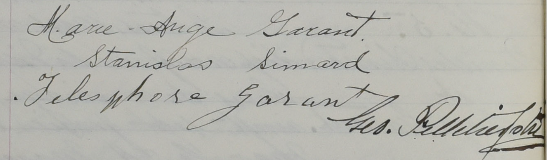 Marie-Ange Garant.
Stanislas Simard
Telesphore Garant
Geo. Pelletier ptre